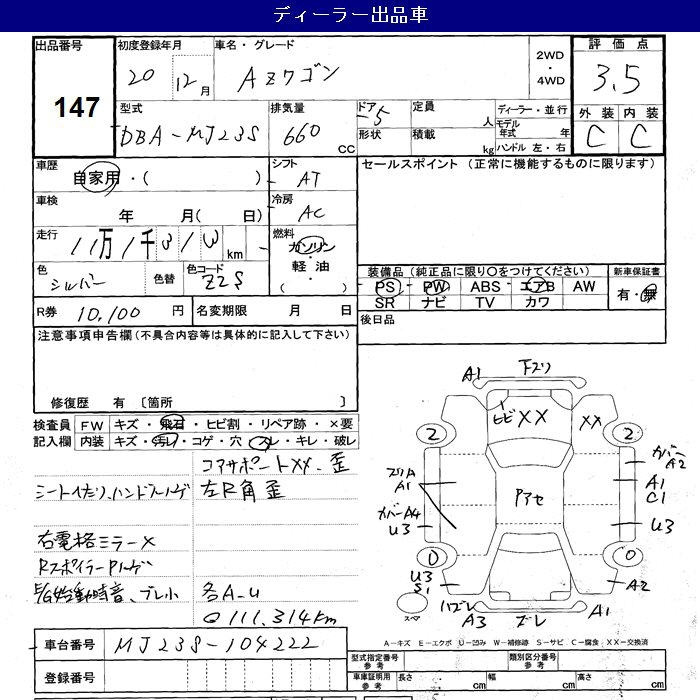 ディーラー出品車
出品番号 初度登録年月 車名・グレード 2WD・4WD 評価点
147 20 12月 AZワゴン 3.5
型式 排気量 ドア 定員 ディーラー・並行 外装 内装
DBA-MJ23S 660 CC 5 人 モデル年式 年 C C
形状 積載 kg ハンドル 左・右
車歴 シフト セールスポイント (正常に機能するものに限ります)
自家用・( ) AT
車検 冷房
年 月( 日) AC
走行 燃料
11万1千3 km ガソリン・軽油・( )
色 色替 色コード 装備品 (純正品に限り○をつけてください) 新車保証書
シルバー Z2S PS PW ABS エアB AW 有・無
SR ナビ TV カワ
R券 10,100円 名変期限 月 日 後日品
注意事項申告欄(不具合内容等は具体的に記入して下さい)
修復歴 有 〔箇所 〕
検査員 FW キズ・飛石・ヒビ割・リペア跡・×要
記入欄 内装 キズ・汚レ・コゲ・穴・スレ・キレ・破レ
コアサポートXX、歪
シートヘタリ、ハンドルハゲ 左R角歪
右電格ミラー×
RスポイラーPハゲ
E/G始動時音、ブレ小 各A-U
111,314km
A1 下ズリ
ヒビ XX XX
2 2
カバーA2
スリA A1 Pアセ A1 C1
カバーA4 U3 U3
0 0
U3 S1 A2
スペア ハズレ A3 ズレ A1
A-キズ E-エクボ U-凹み W-補修跡 S-サビ C-腐食 XX-交換済
車台番号 MJ23S-104222
型式指定番号 参考 類別区分番号 参考
登録番号 車庫証明用 参考 長さ cm 幅 cm 高さ cm